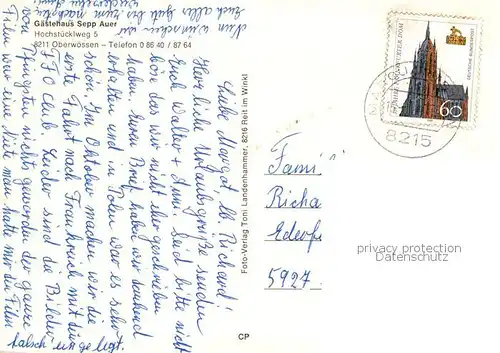 Gästehaus Sepp Auer
Hochstücklweg 5
8211 Oberwössen – Telefon 0 86 40 / 87 64
Liebe Margot, lb. Richard!
Herzliche Urlaubsgrüße senden
Euch Walter + Anni. Seid bitte nicht
böse das wir nicht hergeschrieben
haben. Euren Brief haben wir dankend
erhalten und in Polen war es sehr
schön. Im Oktober machen wir die
erste Fahrt nach Frankreich mit dem
FFO Club. Leider sind die Bilder
von Pfingsten nichts geworden der ganze
Film war eine Niete man hatte mir den Film
falsch eingelegt.
Nun wünschen wir
Euch alles Gute bis zum nächsten
Foto-Verlag Toni Landenhammer, 8216 Reit im Winkl
CP
Fami
Richa
Ederfs
5927
FRANKFURTER DOM
DEUTSCHE BUNDESPOST
60
8215
privacy protection
Datenschutz